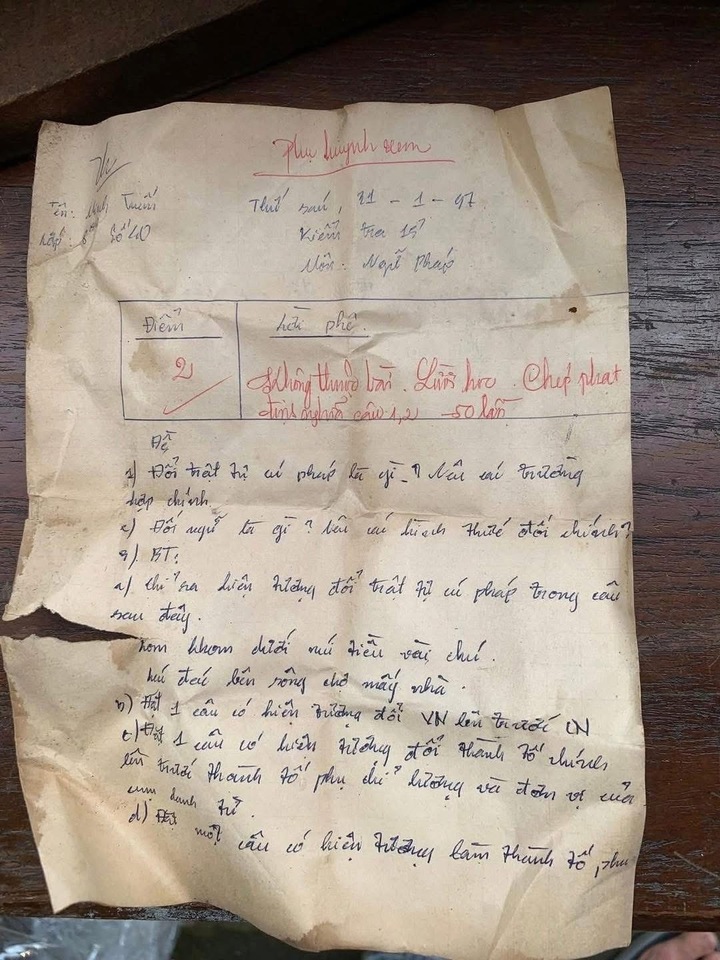 Phụ huynh xem
Tên: Minh Tuấn
Thứ sáu, 31 - 1 - 97
Lớp: 8 Số 40
Kiểm tra 15'
Môn: Ngữ pháp
Điểm
Lời phê.
2
Không thuộc bài. Lười học. Chép phạt
định nghĩa câu 1, 2 - 50 lần
Đề
1) Đổi trật tự cú pháp là gì? Nêu các trường
hợp chính
2) Đối ngữ là gì? các hình thức đối chính?
3). BT:
a) Chỉ ra hiện tượng đổi trật tự cú pháp trong câu
sau đây.
Lom khom dưới núi tiều vài chú.
Lác đác bên sông chợ mấy nhà.
b) Đặt 1 câu có hiện tượng đổi VN lên trước CN
c) Đặt 1 câu có hiện tượng đổi thành tố chính
lên trước thành tố phụ chỉ lượng và đơn vị của
cụm danh từ.
d) Đặt một câu có hiện tượng làm thành tố phụ